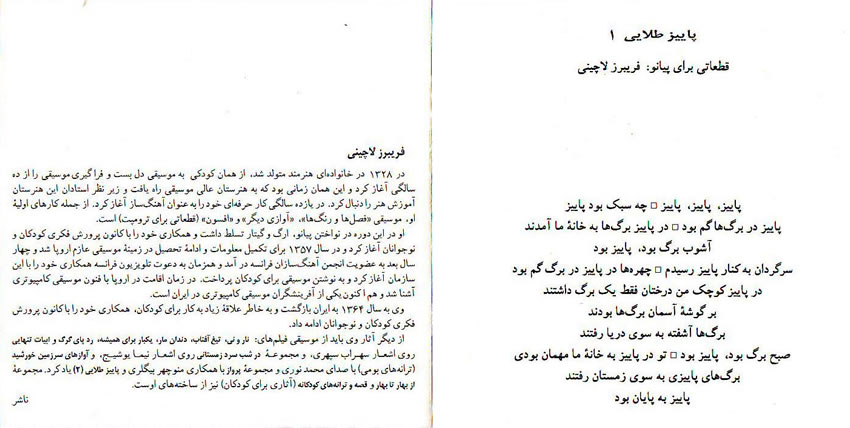 پاییز طلایی ۱
قطعاتی برای پیانو: فریبرز لاچینی
پاییز، پاییز، پاییز □ چه سبک بود پاییز
پاییز در برگ‌ها گم بود □ در پاییز برگ‌ها به خانهٔ ما آمدند
آشوب برگ بود، پاییز بود
سرگردان به کنار پاییز رسیدم □ چهره‌ها در پاییز در برگ گم بود
در پاییز کوچک من درختان فقط یک برگ داشتند
بر گوشهٔ آسمان برگ‌ها بودند
برگ‌ها آشفته به سوی دریا رفتند
صبح برگ بود، پاییز بود □ تو در پاییز به خانهٔ ما مهمان بودی
برگ‌های پاییزی به سوی زمستان رفتند
پاییز به پایان بود
فریبرز لاچینی
در ۱۳۲۸ در خانواده‌ای هنرمند متولد شد، از همان کودکی به موسیقی دل بست و فراگیری موسیقی را از ده
سالگی آغاز کرد و این همان زمانی بود که به هنرستان عالی موسیقی راه یافت و زیر نظر استادان این هنرستان
آموزش هنر را دنبال کرد. در یازده سالگی کار حرفه‌ای خود را به عنوان آهنگ‌ساز آغاز کرد. از جمله کارهای اولیهٔ
او، موسیقی «فصل‌ها و رنگ‌ها»، «آوازی دیگر» و «افسون» (قطعاتی برای ترومپت) است.
او در این دوره در نواختن پیانو، ارگ و گیتار تسلط داشت و همکاری خود را با کانون پرورش فکری کودکان و
نوجوانان آغاز کرد و در سال ۱۳۵۷ برای تکمیل معلومات و ادامهٔ تحصیل در زمینهٔ موسیقی عازم اروپا شد و چهار
سال بعد به عضویت انجمن آهنگ‌سازان فرانسه در آمد و همزمان به دعوت تلویزیون فرانسه همکاری خود را با این
سازمان آغاز کرد و به نوشتن موسیقی برای کودکان پرداخت. در زمان اقامت در اروپا با فنون موسیقی کامپیوتری
آشنا شد و هم اکنون یکی از آفرینشگران موسیقی کامپیوتری در ایران است.
وی به سال ۱۳۶۴ به ایران بازگشت و به خاطر علاقهٔ زیاد به کار برای کودکان، همکاری خود را با کانون پرورش
فکری کودکان و نوجوانان ادامه داد.
از دیگر آثار وی باید از موسیقی فیلم‌های: نار و نی، تیغ آفتاب، دندان مار، یکبار برای همیشه، رد پای گرگ و ابیات تنهایی
روی اشعار سهراب سپهری، و مجموعهٔ در شب سرد زمستانی روی اشعار نیما یوشیج، و آوازهای سرزمین خورشید
(ترانه‌های بومی) با صدای محمد نوری و مجموعهٔ پرواز با همکاری منوچهر بیگلری و پاییز طلایی (۲) یاد کرد. مجموعهٔ
از بهار تا بهار و قصه و ترانه‌های کودکانه (آثاری برای کودکان) نیز از ساخته‌های اوست.
ناشر